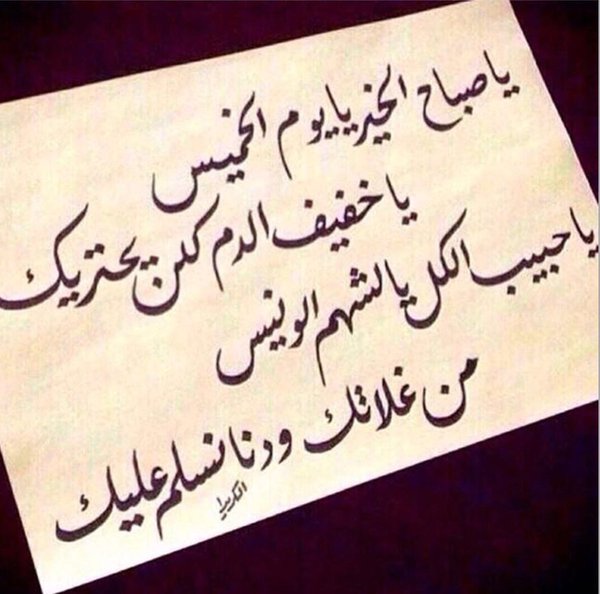 يا صباح الخير يا يوم الخميس
يا خفيف الدم كلن يحتريك
يا حبيب الكل يالشهم الونيس
من غلاتك ودنا نسلم عليك